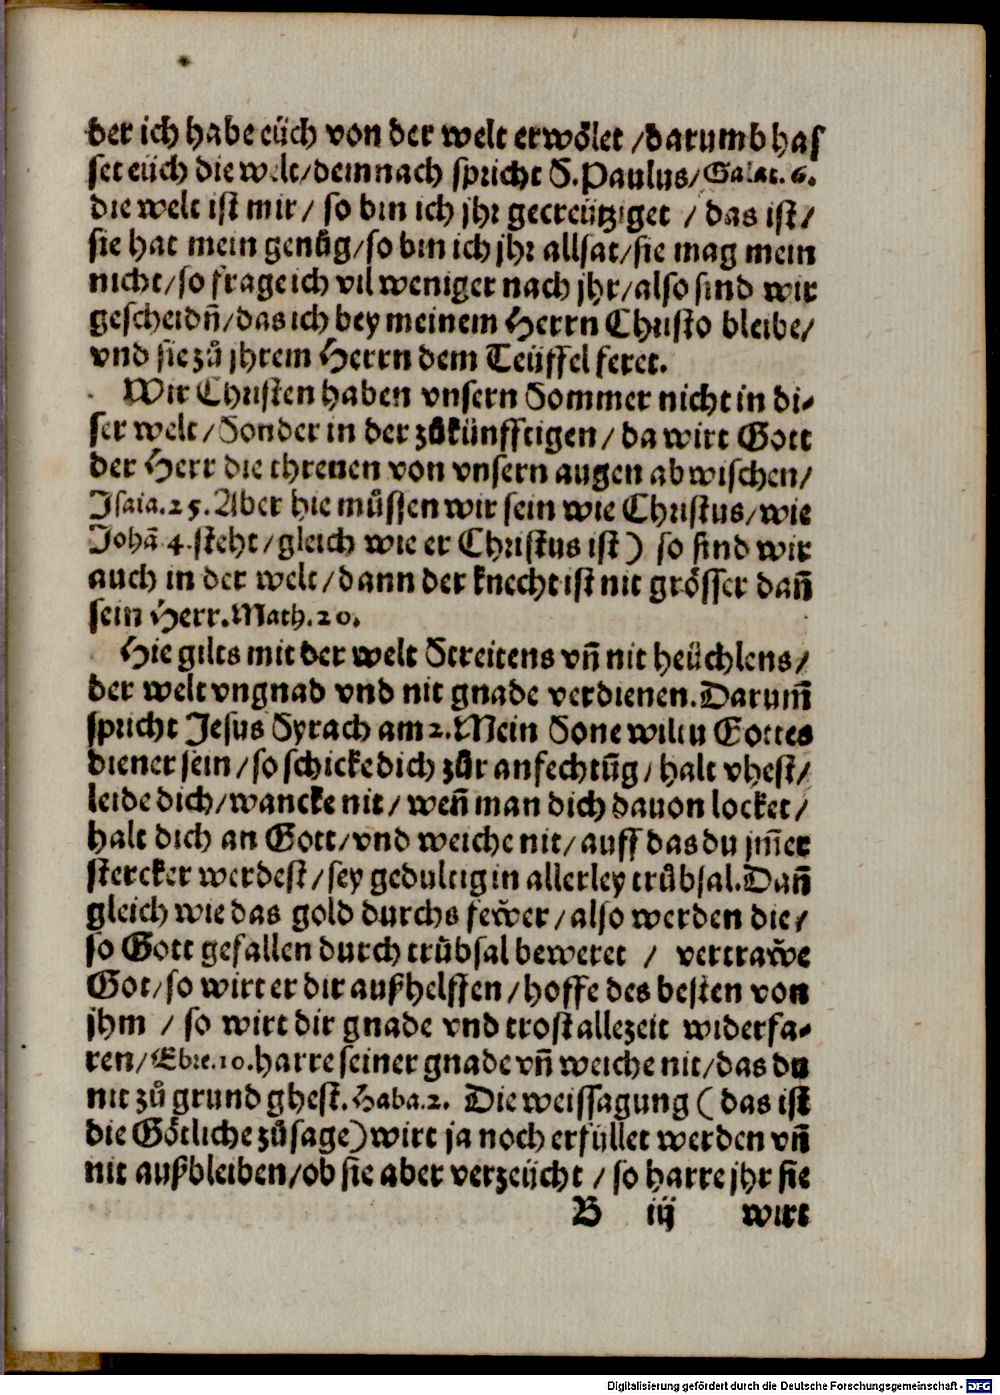 der ich habe eüch von der welt erwölet /darumb has
set eüch die welt/demnach spricht S.Paulus/Galat.6.
die welt ist mir/ so bin ich jhr gecreütziget / das ist/
sie hat mein genůg/so bin ich jhr allsat/sie mag mein
nicht/so frage ich vil weniger nach jhr/also sind wir
gescheidn̄/das ich bey meinem Herrn Christo bleibe/
vnd sie zů jhrem Herrn dem Teüffel feret.
Wir Christen haben vnsern Sommer nicht in di-
ser welt/Sonder in der zůkünfftigen/da wirt Gott
der Herr die threnen von vnsern augen abwischen/
Isaia.25.Aber hie müssen wir sein wie Christus/wie
Johā 4.steht/gleich wie er Christus ist) so sind wir
auch in der welt/dann der knecht ist nit grösser dan̄
sein Herr.Math.20.
Hie gilts mit der welt Streitens vn̄ nit heüchlens/
der welt vngnad vnd nit gnade verdienen.Darum̄
spricht Jesus Syrach am 2.Mein Sone wiltu Gottes
diener sein/so schicke dich zůr anfechtūg/halt vhest/
leide dich/wancke nit/wen̄ man dich dauon locket/
halt dich an Gott/vnd weiche nit/auff das du jm̄er
stercker werdest/sey gedultig in allerley trübsal.Dan̄
gleich wie das gold durchs feẅer/also werden die/
so Gott gefallen durch trübsal beweret / vertraẅe
Got/so wirt er dir außhelffen/hoffe des besten von
jhm / so wirt dir gnade vnd trost allezeit widerfa-
ren/Ebre.10.harre seiner gnade vn̄ weiche nit/das du
nit zů grund ghest.Haba.2. Die weissagung (das ist
die Götliche zůsage)wirt ja noch erfüllet werden vn̄
nit außbleiben/ob sie aber verzeücht / so harre jhr sie
B iij wirt
Digitalisierung gefördert durch die Deutsche Forschungsgemeinschaft - DFG